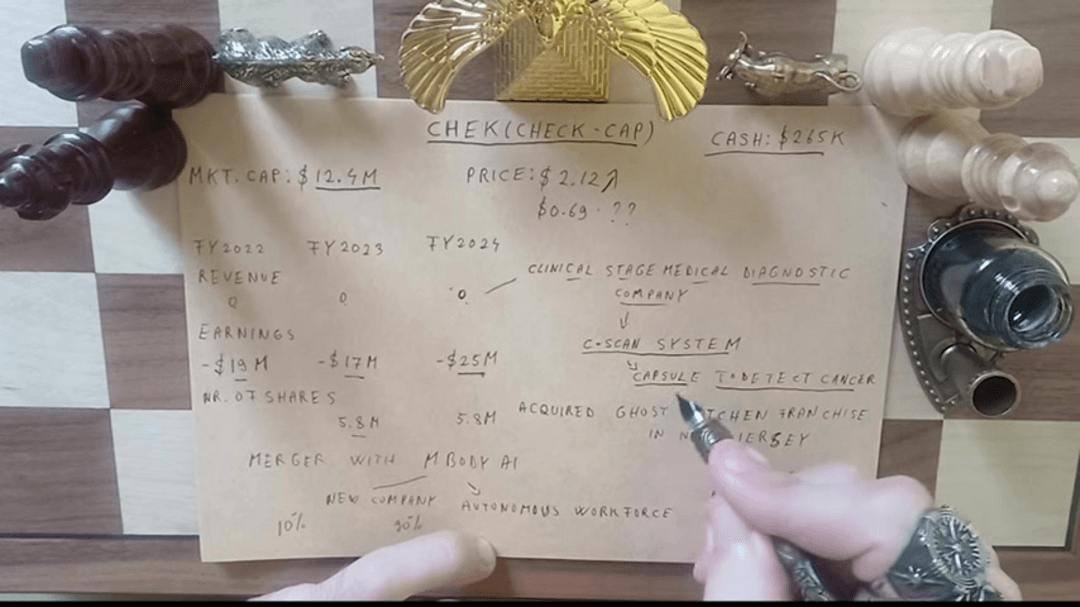 CHEK(CHECK-CAP)
CASH: $265K
MKT. CAP: $12.4M
PRICE: $2.12↗
$0.69 - ??
FY2022 FY2023 FY2024
REVENUE
0 0 0
CLINICAL STAGE MEDICAL DIAGNOSTIC
COMPANY
↓
C-SCAN SYSTEM
CAPSULE TO DETECT CANCER
EARNINGS
-$19M -$17M -$25M
NR. OF SHARES
5.8M 5.8M
ACQUIRED GHOST FRANCHISE
IN
MERGER WITH MBODY AI
NEW COMPANY
AUTONOMOUS WORKFORCE
10% 90%